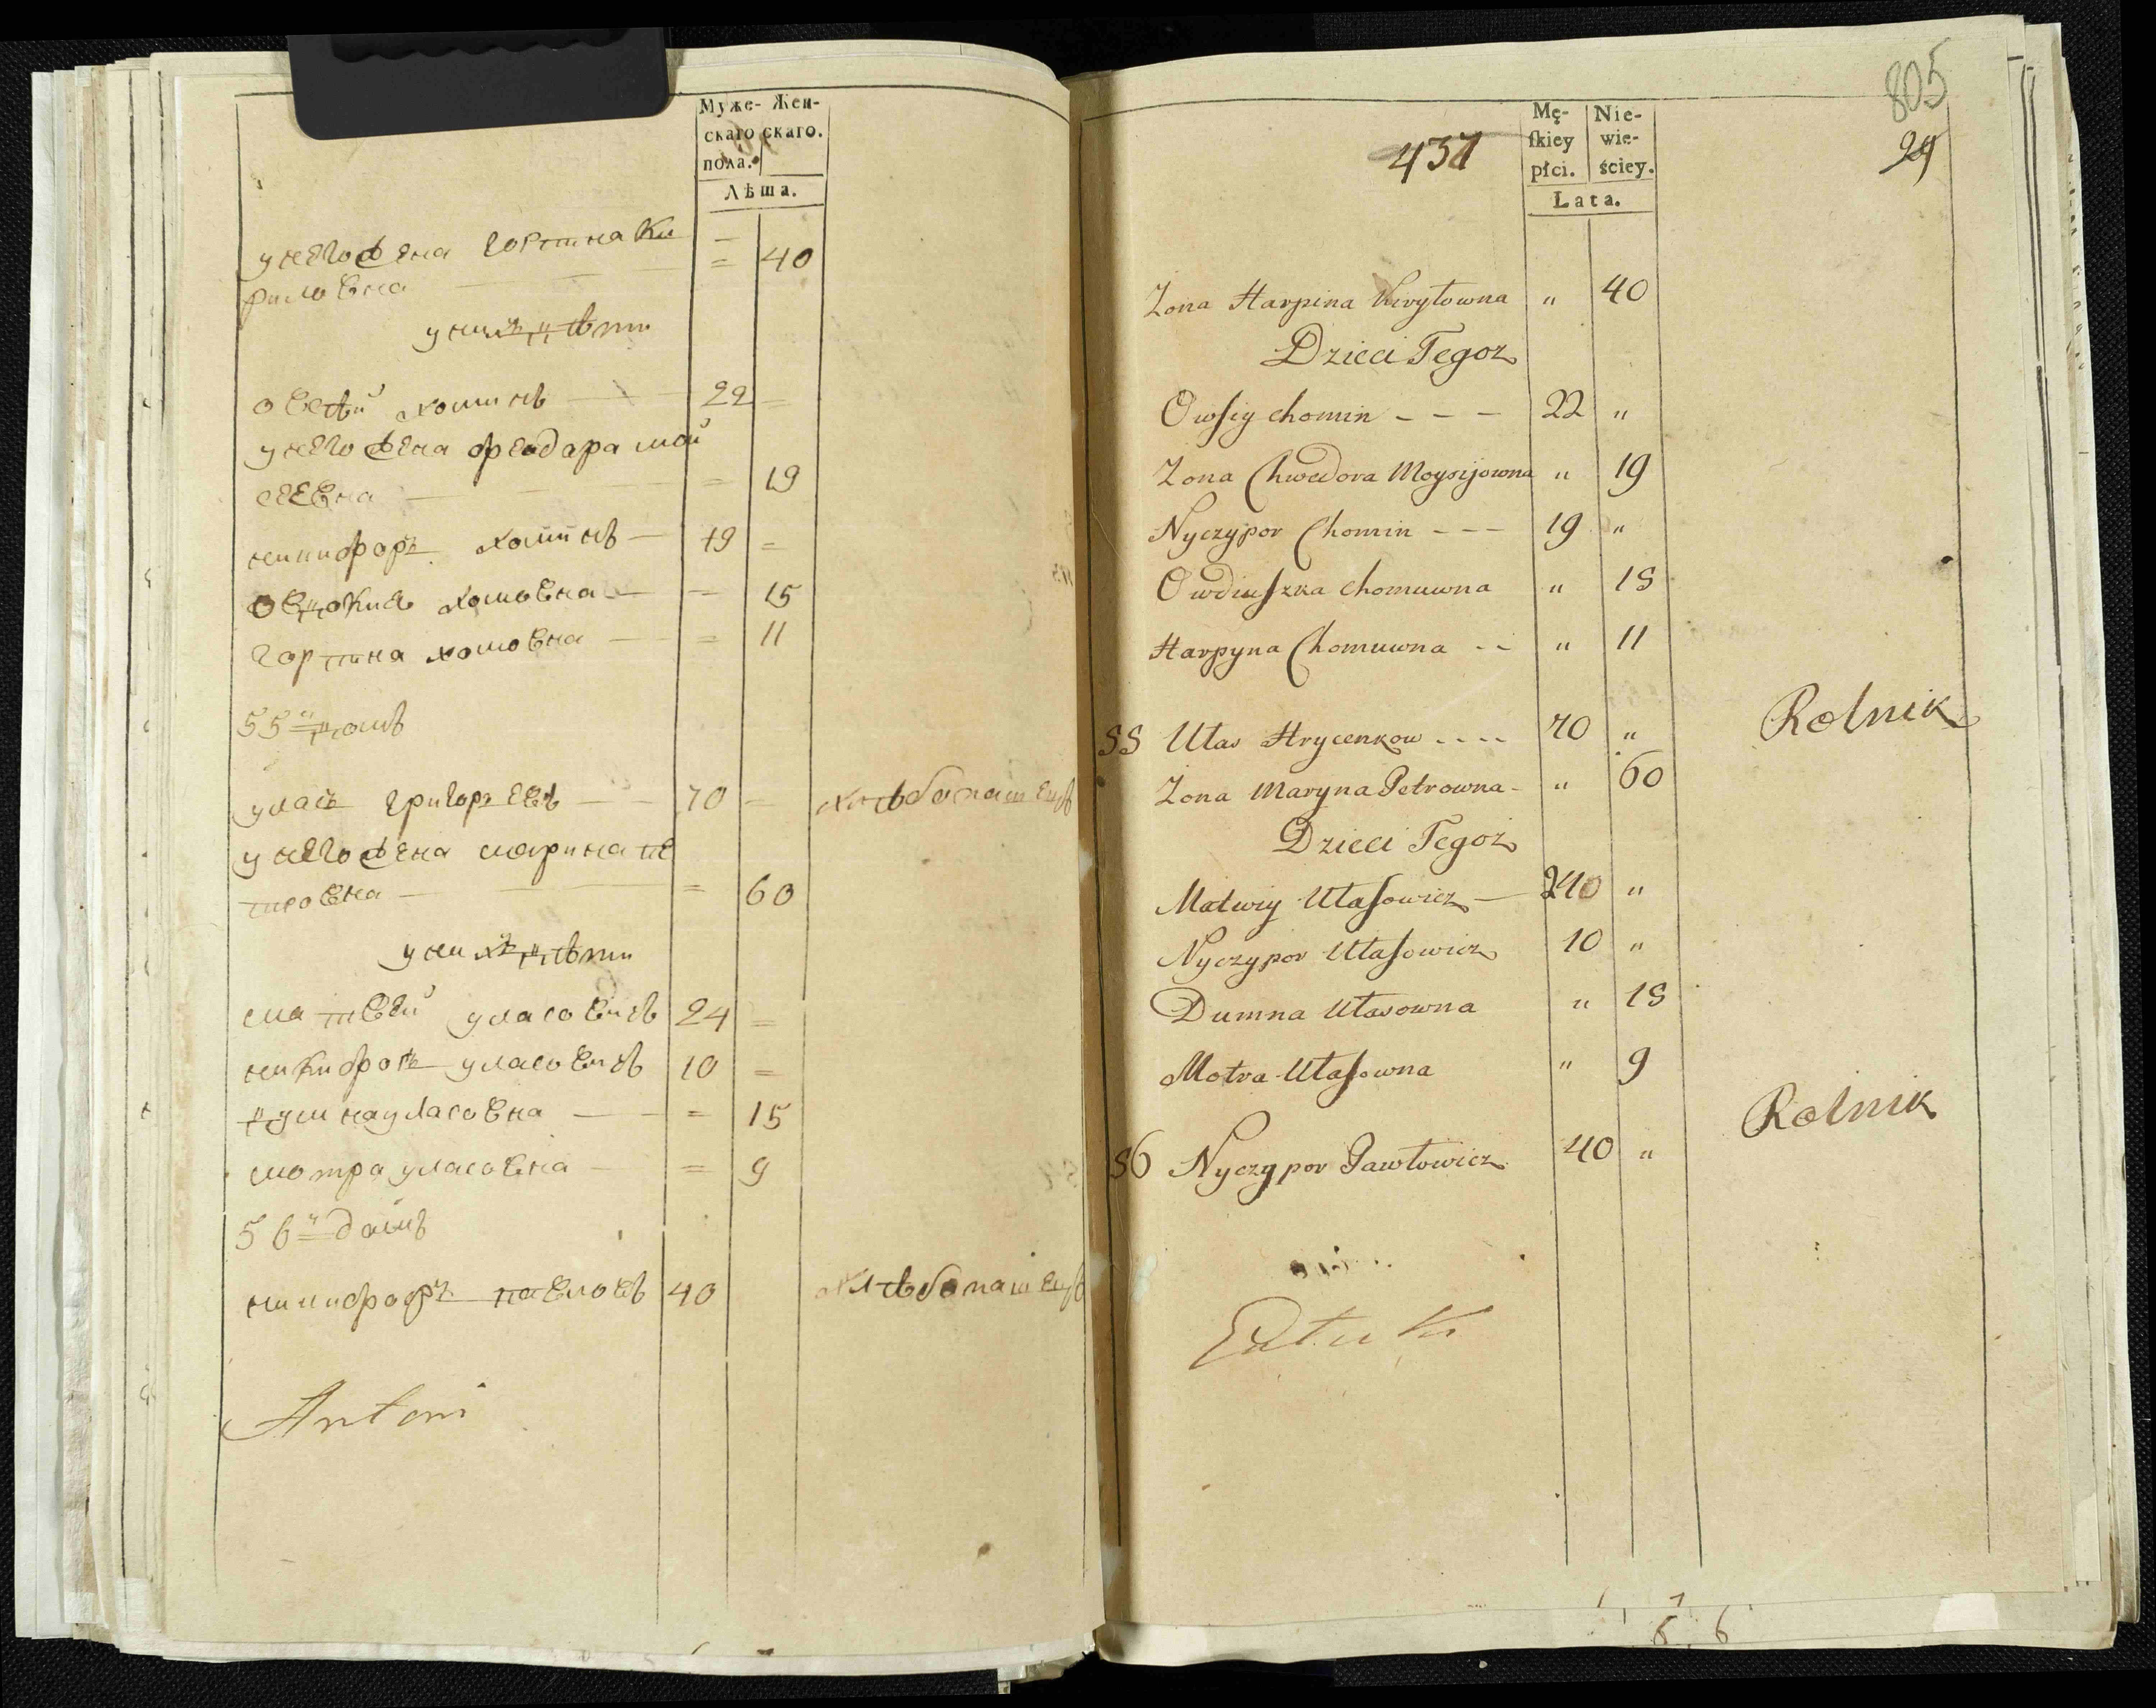 Муже- Жен-
скаго скаго.
пола.
Лѣта.
у него жена горпина Ки
риловна = 40
у нихъ дѣти
овсѣй хоминъ 22 =
у него жена феодора мой
сеевна = 19
ничифоръ хоминъ 19 =
овдокия хомовна = 15
горпина хомовна = 11
55й домъ
уласъ григорьевъ 70 = хлѣбопашецъ
у него жена марина пе
тровна = 60
у нихъ дѣти
матвей уласовичъ 24 =
никифоръ уласовичъ 10 =
думна уласовна = 15
мотра уласовна = 9
56й домъ
ничифоръ павловъ 40 хлѣбопашецъ
Antoni
805
437
29
Mę- Nie-
skiey wie-
płci. ściey.
Lata.
Zona Harpina Kiryłowna " 40
Dzieci Tegoż
Owsiy Chomin - - - 22 "
Zona Chwedora Moysijowna " 19
Nyczypor Chomin - - - 19 "
Owdiuszka Chomuwna " 15
Harpyna Chomuwna - - " 11
55 Ułas Hrycenkow - - - - 70 " Rolnik
Zona Maryna Petrowna - " 60
Dzieci Tegoż
Matwiy Ułasowicz - 24 "
Nyczypor Ułasowicz 10 "
Dumna Ułasowna " 15
Motra Ułasowna " 9
56 Nyczypor Pawłowicz 40 " Rolnik